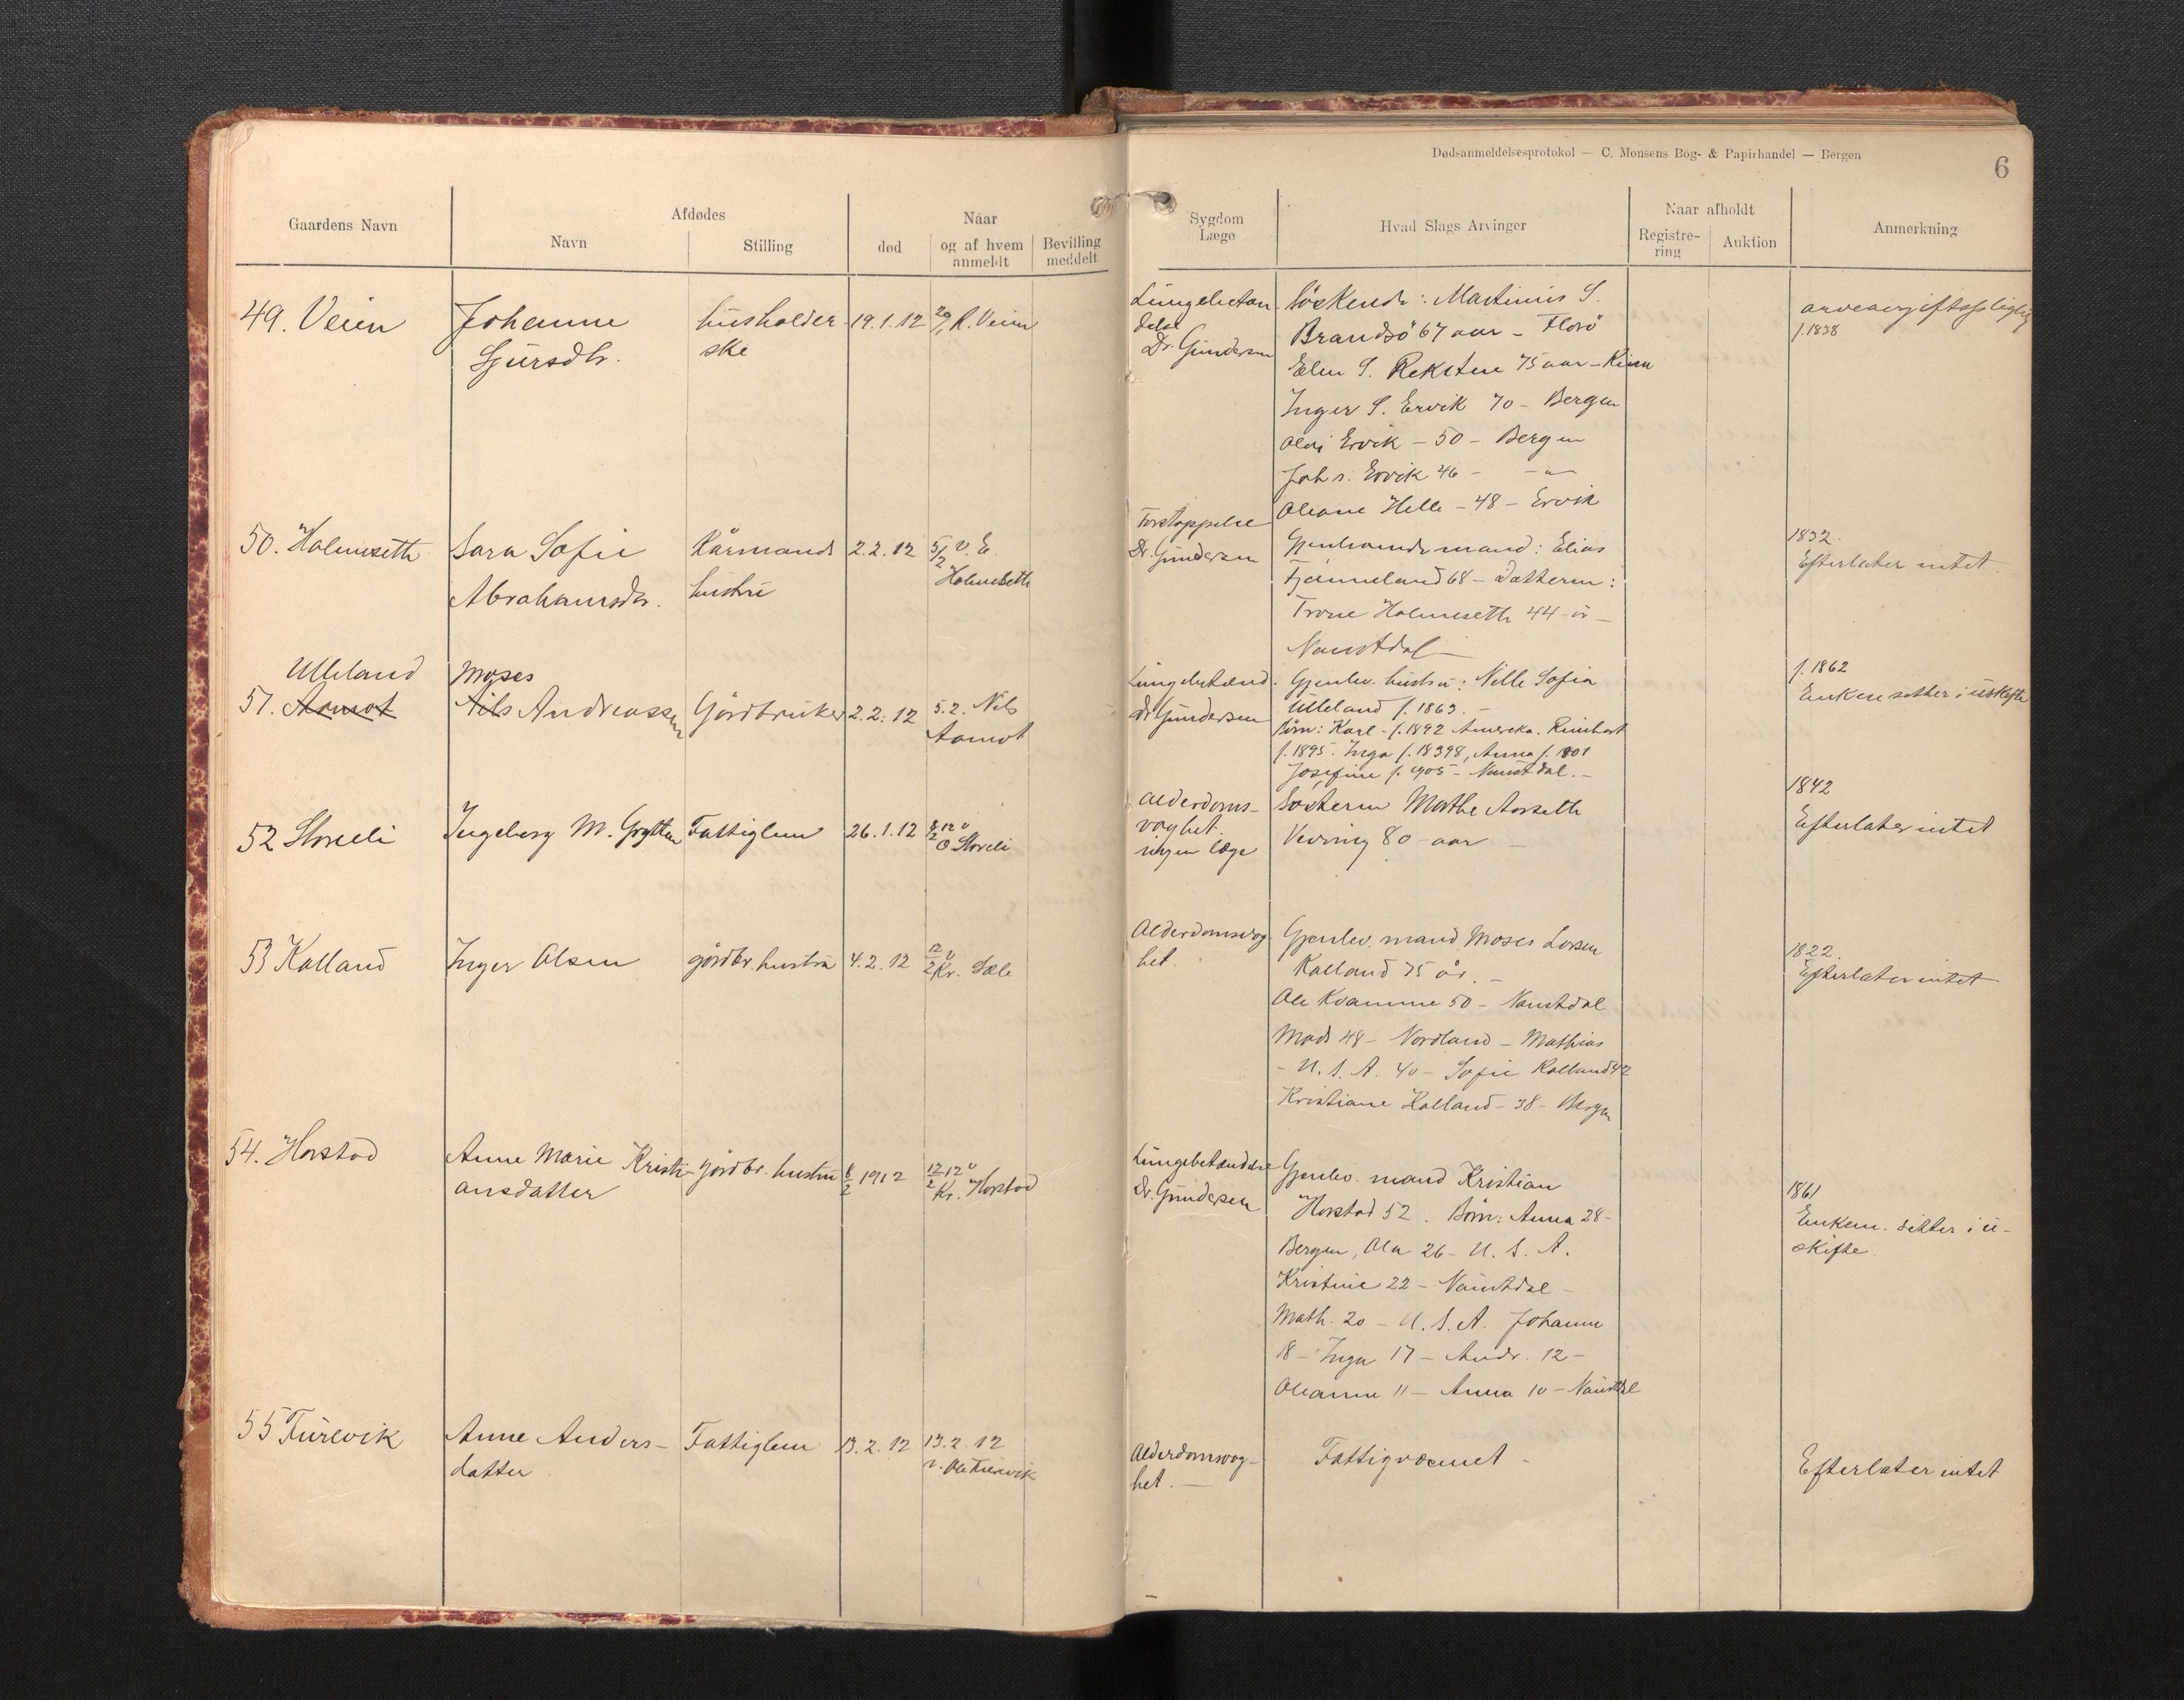 Dødsanmeldelsesprotokol — C. Monsens Bog- & Papirhandel — Bergen
6
Gaardens Navn
Afdødes
Navn
Stilling
Naar
død
og af hvem
anmeldt
Bevilling
meddelt
Sygdom
Læge
Hvad Slags Arvinger
Naar afholdt
Registre-
ring
Auktion
Anmerkning
49. Veien
Johanne
Sjursdtr.
husholder
ske
19.1.12
R. Veien
Lungebetæn
delse
Dr. Gundersen
Söskende: Martinius S.
Brandsö 67 aar – Florö
Elen S. Reksten 75 aar – Kinn
Inger S. Ervik 70 – Bergen
Ervik – 50 – Bergen
Joh s. Ervik 46 – – " –
Oleane Helle – 48 – Ervik
arveavgiftspligtig
f. 1838
50. Holmeseth
Sara Sofie
Abrahamsdr.
Kårmands
hustru
2.2.12
5/2 v. E
Holmeseth
Forstoppelse
Dr. Gundersen
Gjenlevende mand: Elias
Fjeimeland 68 – Datteren:
Trone Holmeseth 44 år –
Naustdal –
1832.
Efterlater intet
Ulleland
51. Aamot
Moses
Nils Andreassen
Gårdbruker
2.2.12
5.2. Nils
Aamot
Lungebetænd.
dr Gundersen
Gjenlev. hustru: Nille Sofia
Ulleland f. 1863. –
Börn: Karl – f. 1892 Amereka. Reinhart
f. 1895. Inga f. 18398, Anna f. 1901
Josefine f. 1905 – Naustdal. –
f. 1862
Enken sitter i uskifte
52 Storeli
Ingeborg M. Grytten
Fattiglem
26.1.12
8/2 12 v
O Storeli
Alderdoms-
svaghet.
ingen læge
Søsteren Marthe Aarseth
Vevring 80 – aar –
1842
Efterlater intet
53 Kalland
Inger Olsen
gårdbr. hustru
4.2.12
12/2 v
Kr. Sæle
Alderdomsvag
het.
Gjenlev. mand Moses Larsen
Kalland 75 år. –
Ole Kvamme 50 – Naustdal
Mads 48 – Nordland – Mathias
– U. S. A. 40 – Sofie Kalland 42
Kristiane Kalland – 38 – Bergen
1822.
Efterlater intet
54. Horstad
Anne Marie Kristi-
ansdatter
gårdbr. hustru
8/2 1912
12/2 12 v
Kr. Horstad
Lungebetændelse
Dr. Gundersen
Gjenlev. mand Kristian
Horstad 52. Börn: Anna 28 –
Bergen, Ola 26 – U. S. A.
Kristine 22 – Naustdal –
Math. 20 – U. S. A. Johanne
18 – Inga 17 – Andr. 12 –
Oleanne 11 – Anna 10 – Naustdal
1861
Enkem. sitter i u-
skifte
55 Furevik
Anne Anders-
datter
Fattiglem
13.2.12
13.2.12
v. Ole Furevik
Alderdomsvag-
het. –
Fattigvæsnet –
Efterlater intet